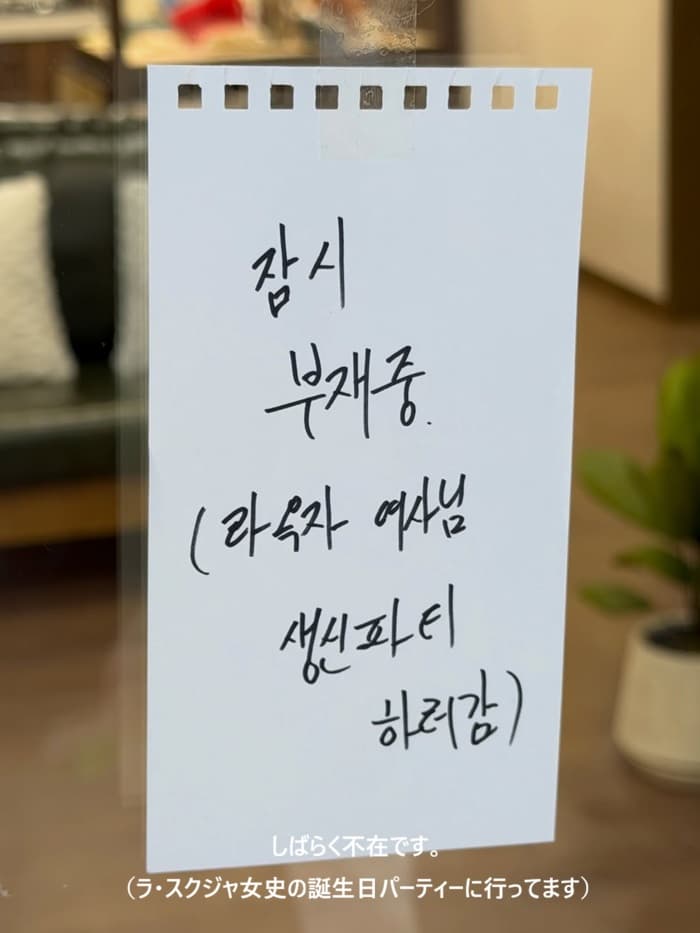 잠시
부재중.
(라옥자 여사님
생신파티
하러감)
しばらく不在です。
（ラ・スクジャ女史の誕生日パーティーに行ってます）